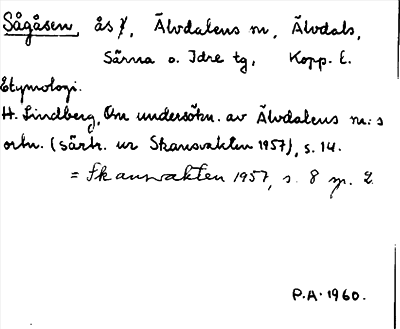 Sågåsen, ås, Älvdalens sn, Älvdals,
Särna o. Idre tg, Kopp. l.
Etymologi.
H. Lindberg, Om undersökn. av Älvdalens sn:s
ortn. (särtr. ur Skansvakten 1957), s. 14.
= Skansvakten 1957, s. 8 sp. 2.
P.A. 1960.